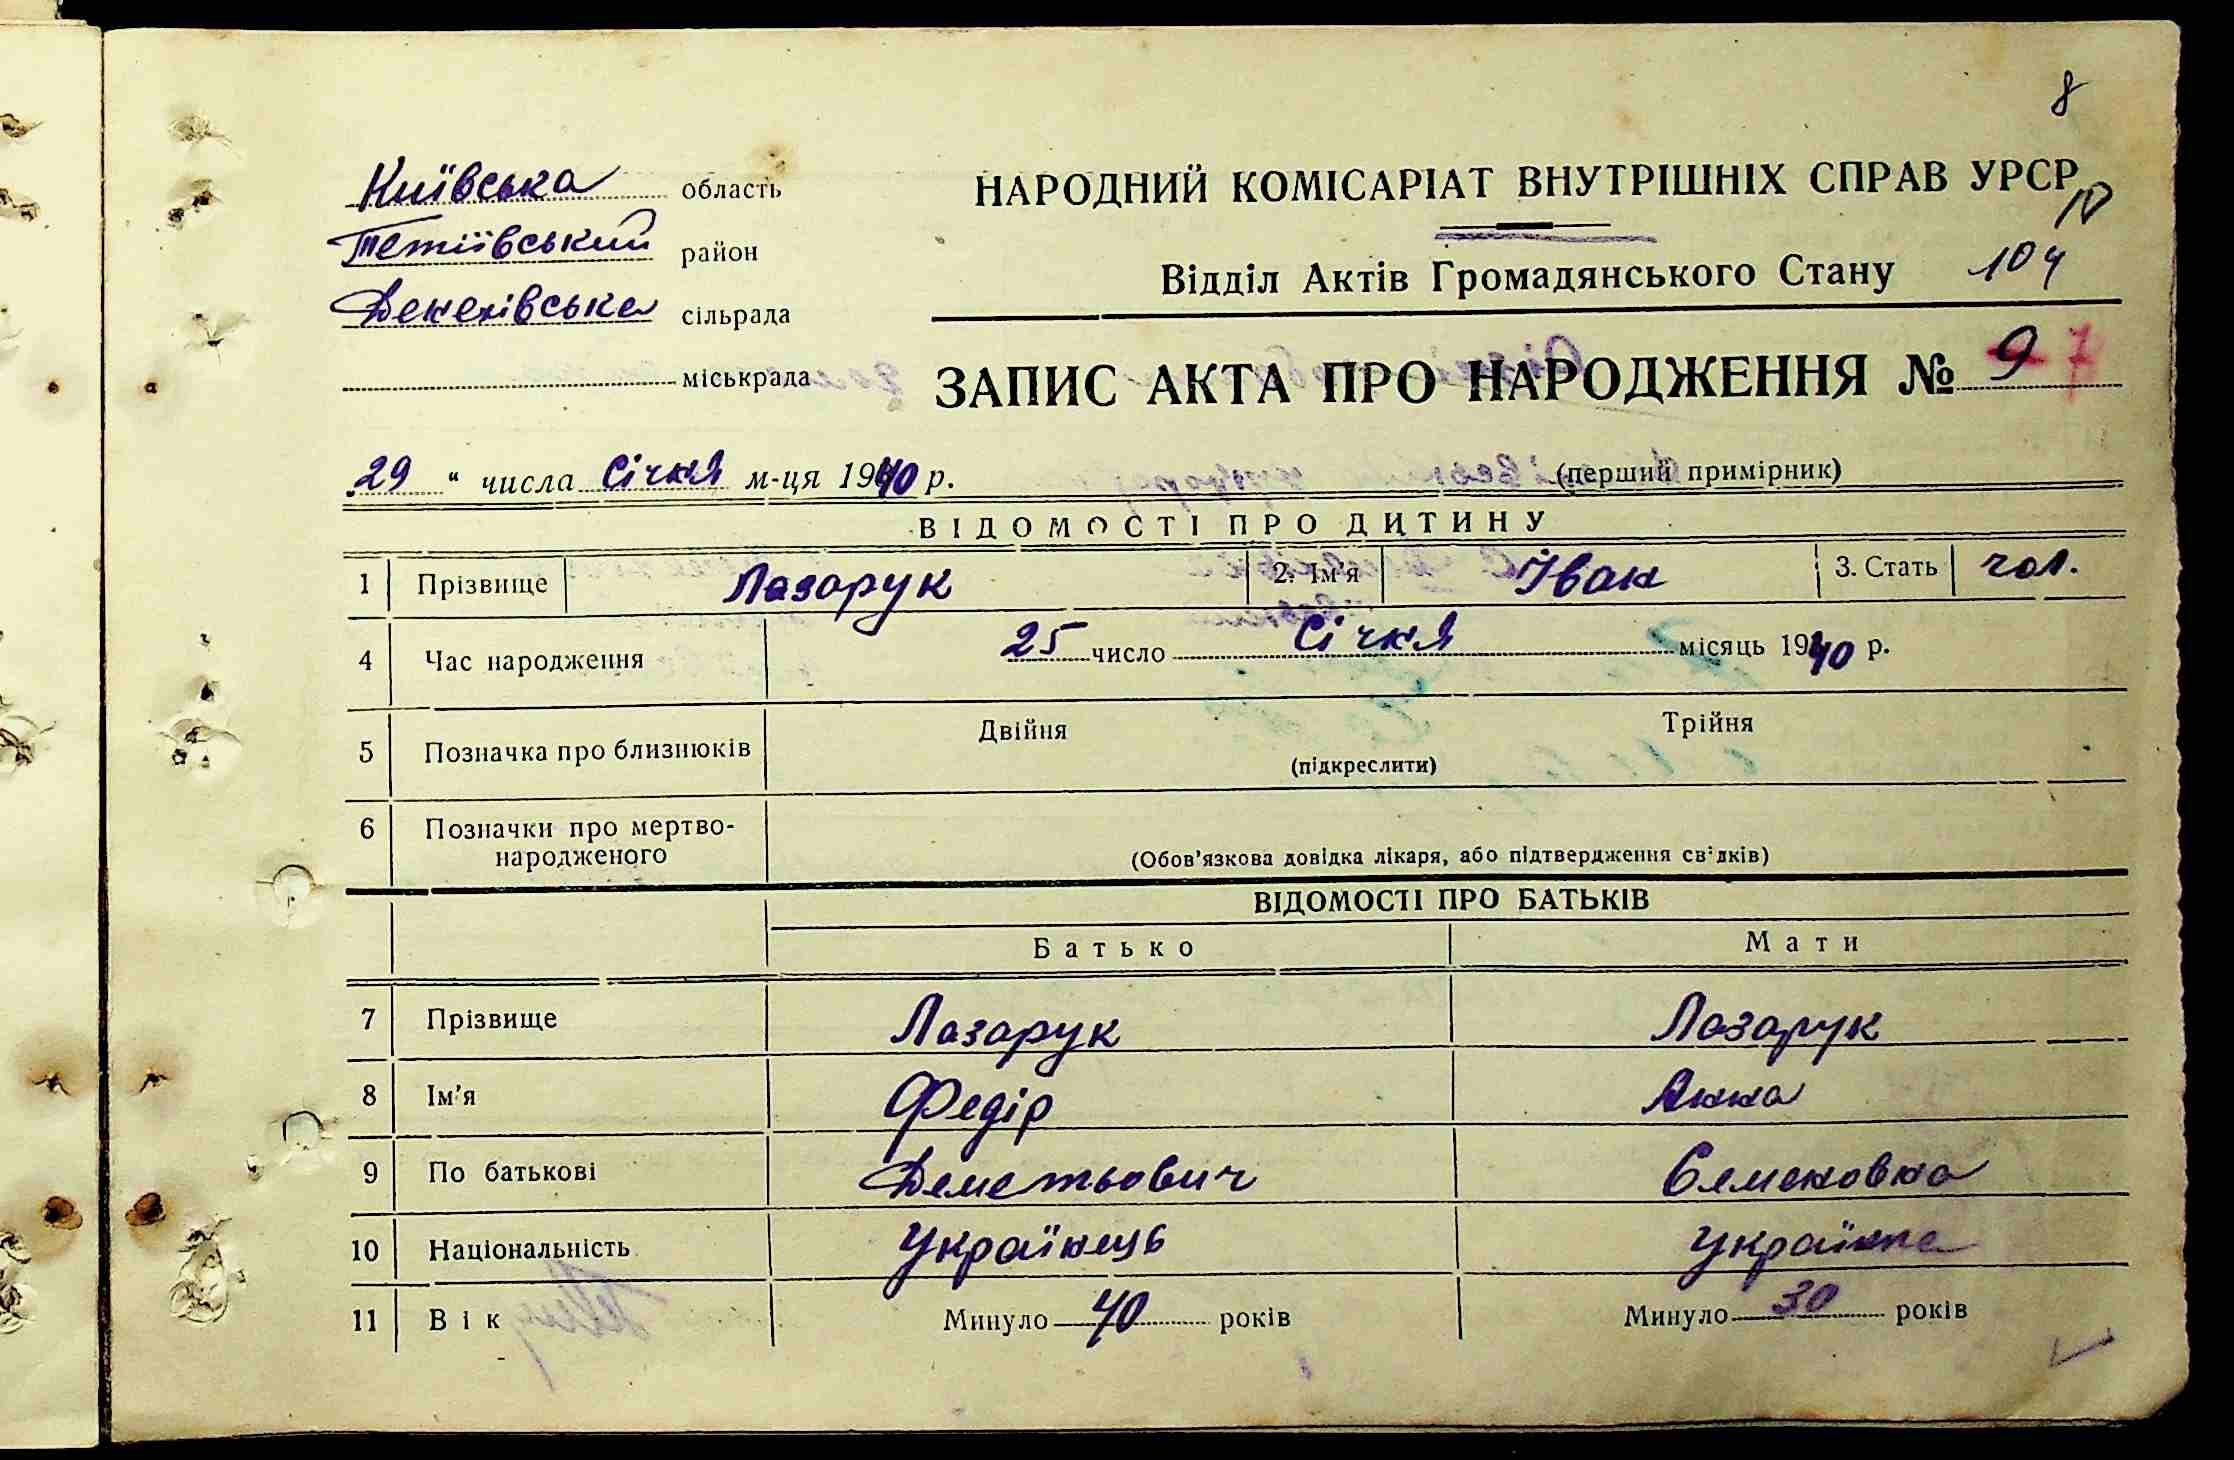 8
Київська область
НАРОДНИЙ КОМІСАРІАТ ВНУТРІШНІХ СПРАВ УРСР
10
Тетіївський район
Відділ Актів Громадянського Стану 104
Денехівська сільрада
міськрада
ЗАПИС АКТА ПРО НАРОДЖЕННЯ № 9 7
„29" числа Січня м-ця 1940 р.
(перший примірник)
ВІДОМОСТІ ПРО ДИТИНУ
1 Прізвище Лазарук 2. Ім'я Іван 3. Стать чол.
4 Час народження 25 число Січня місяць 1940 р.
5 Позначка про близнюків Двійня Трійня
(підкреслити)
6 Позначки про мертво-
народженого
(Обов'язкова довідка лікаря, або підтвердження свідків)
ВІДОМОСТІ ПРО БАТЬКІВ
Батько Мати
7 Прізвище Лазарук Лазарук
8 Ім'я Федір Анна
9 По батькові Деметьович Семеновна
10 Національність Українець Українка
11 Вік Минуло 40 років Минуло 30 років